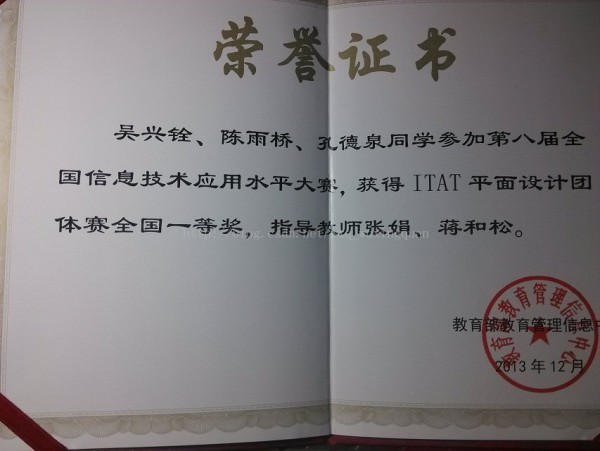 荣誉证书
吴兴铨、陈雨桥、孔德泉同学参加第八届全
国信息技术应用水平大赛，获得 ITAT 平面设计团
体赛全国一等奖，指导教师张娟、蒋和松。
教育部教育管理信息中
教育部教育管理信息中心
2013 年 12 月